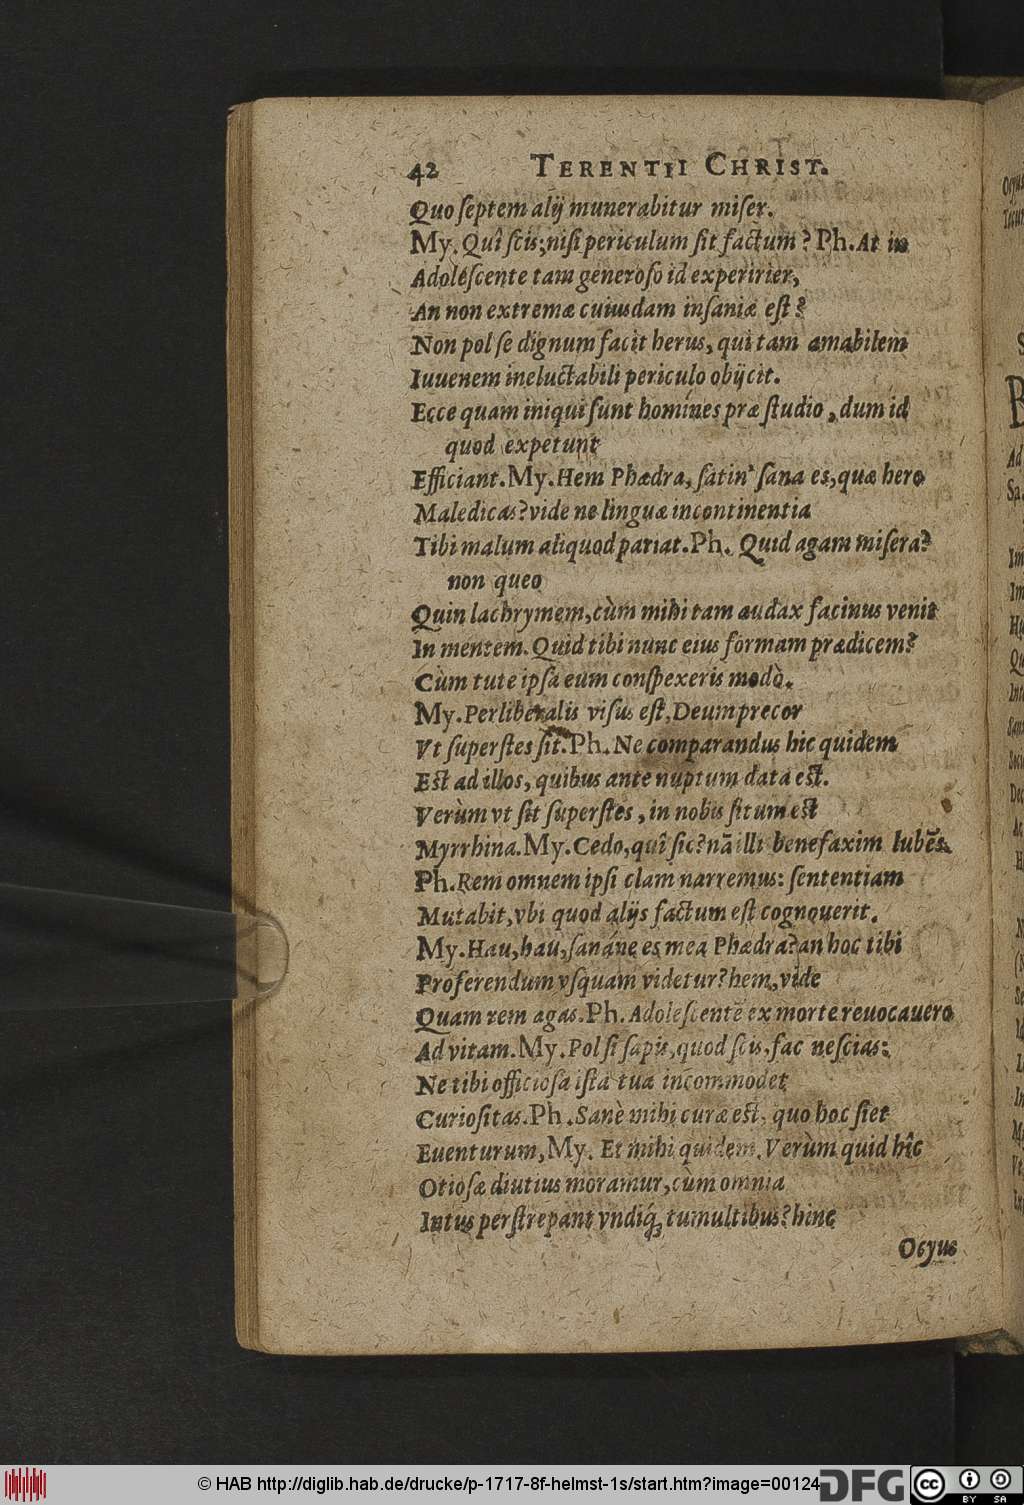 42 TERENTII CHRIST.
Quo ſeptem alij munerabitur miſer.
My. Quî ſcis; niſi periculum ſit factum? Ph. At in
Adoleſcente tam generoſo id experirier,
An non extremæ cuiusdam inſaniæ eſt?
Non pol ſe dignum facit herus, qui tam amabilem
Iuuenem ineluctabili periculo obijcit.
Ecce quam iniqui ſunt homines præ ſtudio, dum id
quod expetunt
Efficiant. My. Hem Phædra, ſatin' ſana es, quæ hero
Maledicas? vide ne linguæ incontinentia
Tibi malum aliquod pariat. Ph. Quid agam miſera?
non queo
Quin lachrymem, cùm mihi tam audax facinus venit
In mentem. Quid tibi nunc eius formam prædicem?
Cùm tute ipſa eum conſpexeris modò.
My. Perliberalis viſus eſt, Deum precor
Vt ſuperſtes ſit. Ph. Ne comparandus hic quidem
Eſt ad illos, quibus ante nuptum data eſt.
Verùm vt ſit ſuperſtes, in nobis ſitum eſt
Myrrhina. My. Cedo, quî ſic? nā illi benefaxim lubēs.
Ph. Rem omnem ipſi clam narremus: ſententiam
Mutabit, vbi quod alijs factum eſt cognouerit.
My. Hau, hau, ſanáne es mea Phædra? an hoc tibi
Proferendum vſquam videtur? hem, vide
Quam rem agas. Ph. Adoleſcentē ex morte reuocauero
Ad vitam. My. Pol ſi ſapis, quod ſcis, fac neſcias:
Ne tibi officioſa iſta tua incommodet
Curioſitas. Ph. Sanè mihi curæ eſt, quo hoc ſiet
Euenturum, My. Et mihi quidem. Verùm quid hîc
Otioſæ diutius moramur, cùm omnia
Intus perſtrepant vndiq́; tumultibus? hinc
Ocyus
© HAB http://diglib.hab.de/drucke/p-1717-8f-helmst-1s/start.htm?image=00124
DFG
cc BY SA